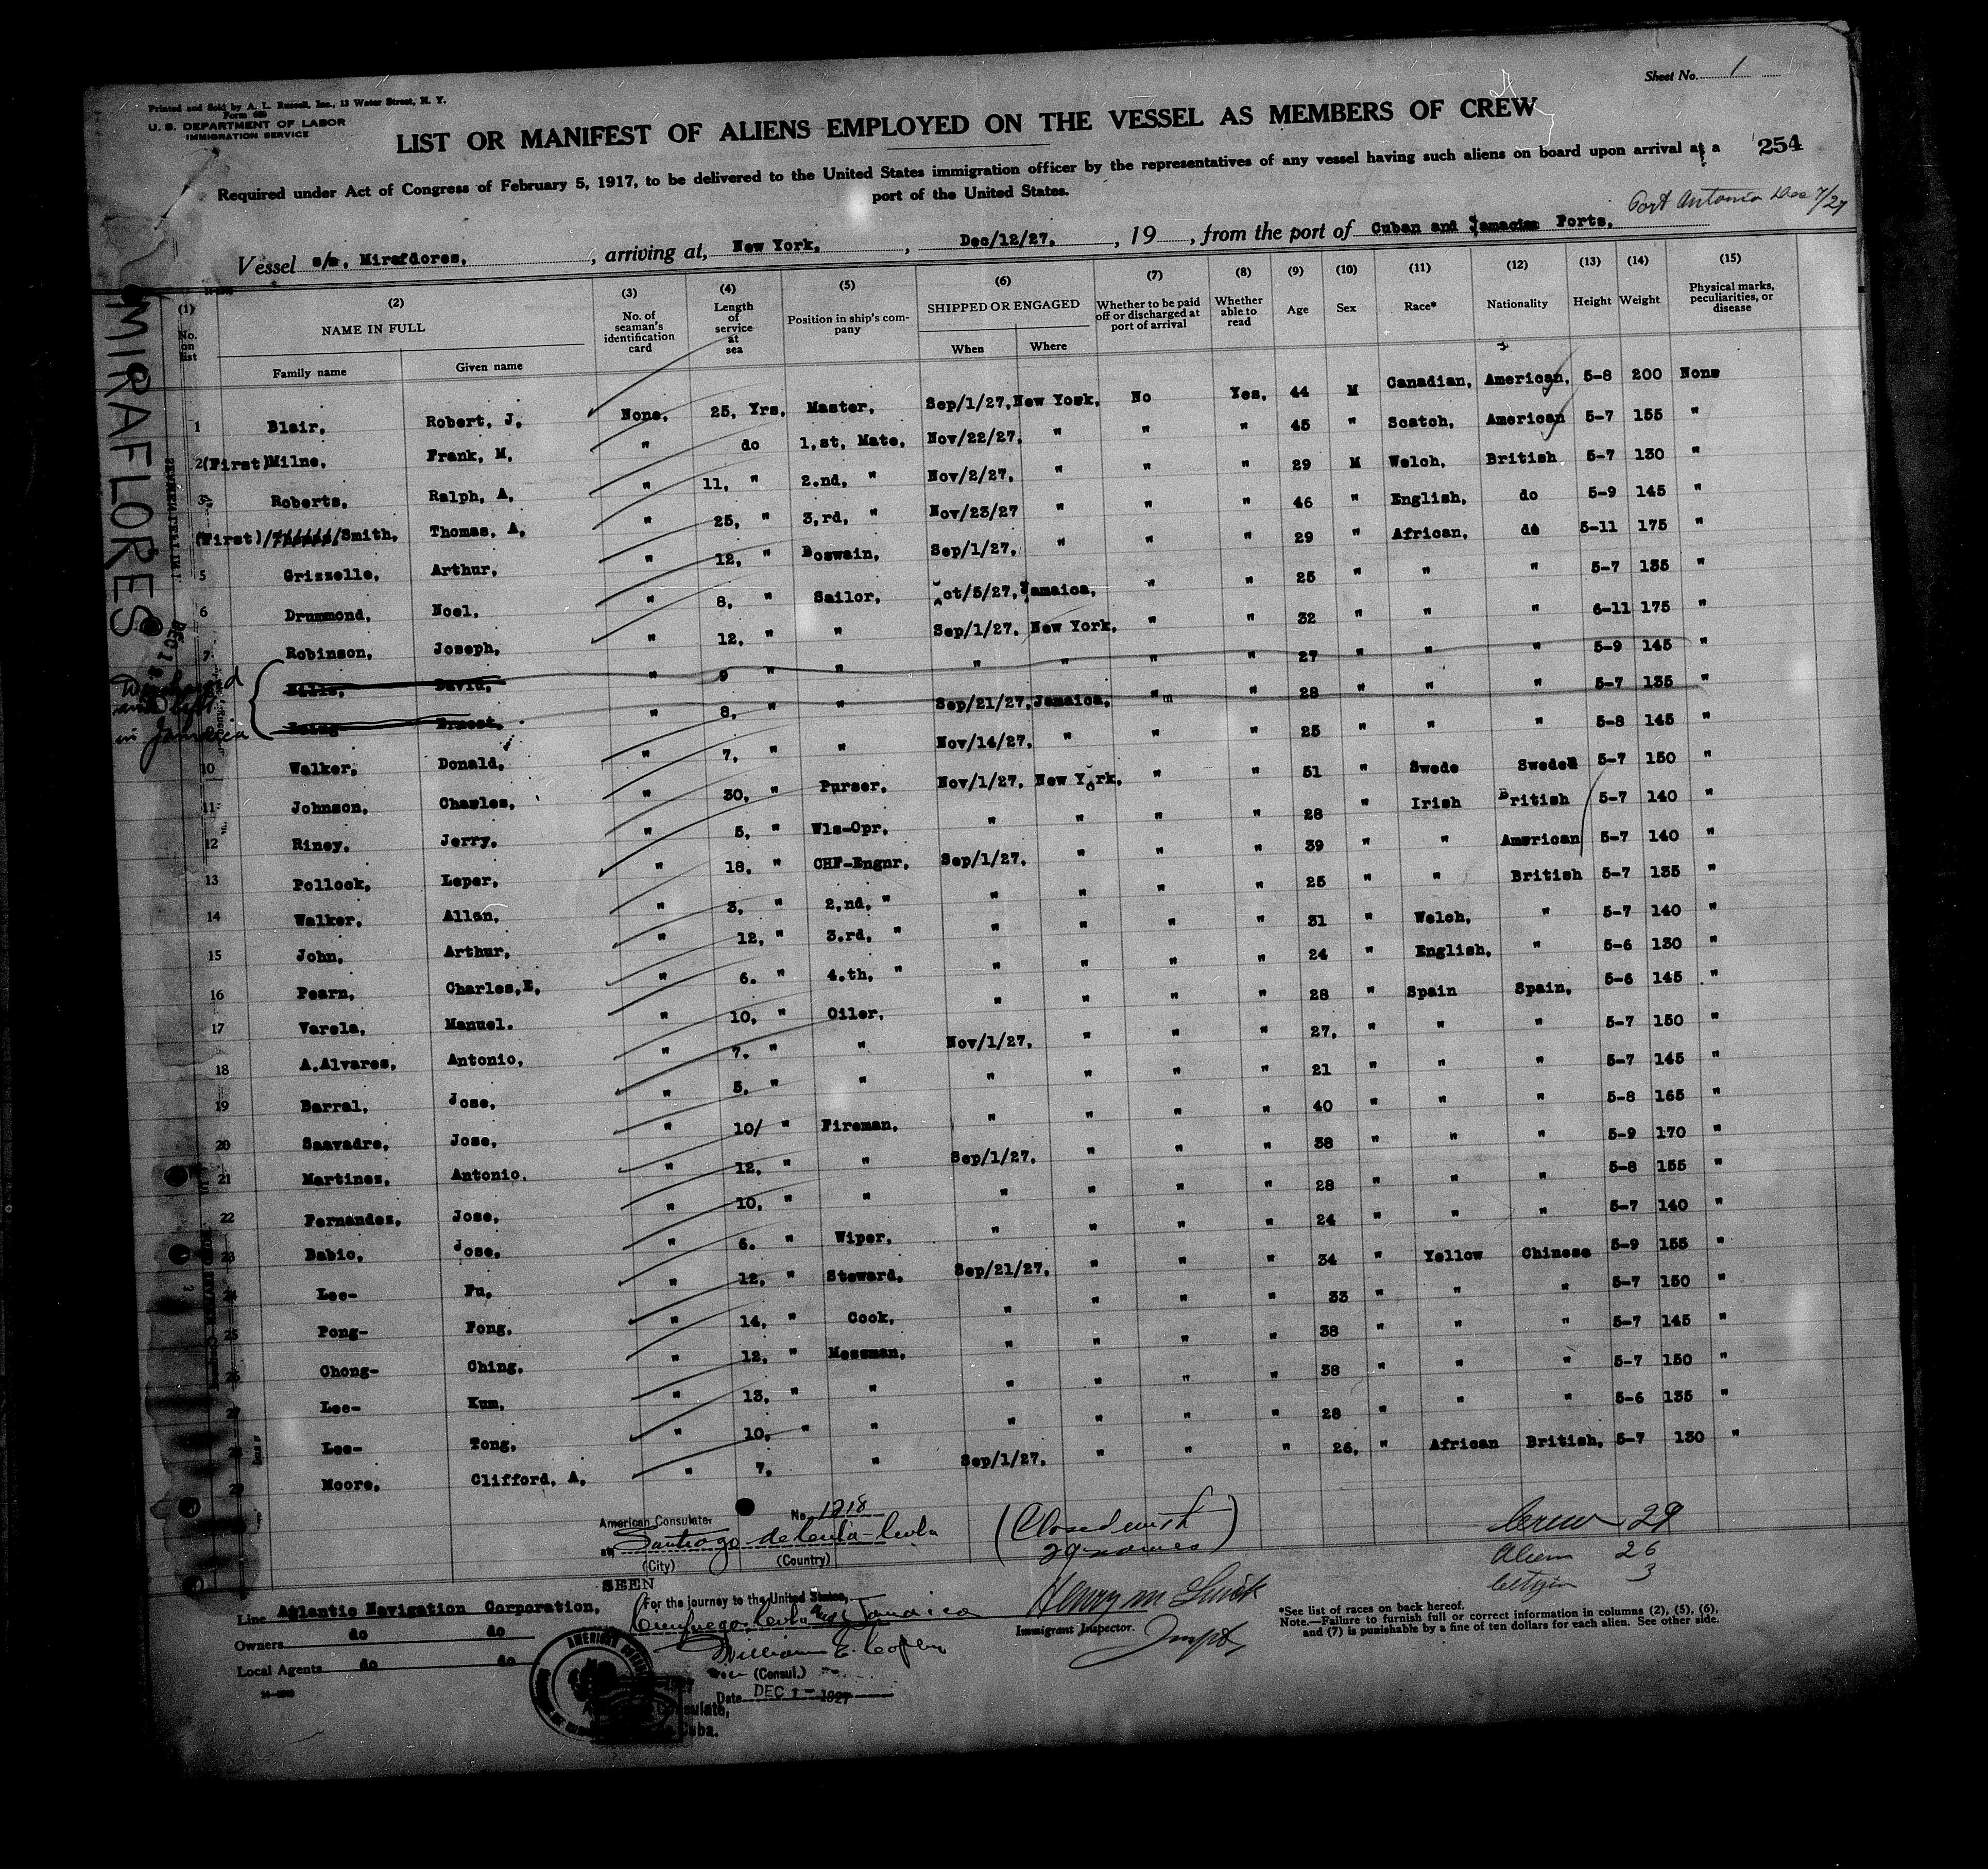 Sheet No. 1
Printed and Sold by A. L. Russell, Inc., 13 Water Street, N. Y.
Form 680
U. S. DEPARTMENT OF LABOR
IMMIGRATION SERVICE
LIST OR MANIFEST OF ALIENS EMPLOYED ON THE VESSEL AS MEMBERS OF CREW
254
Required under Act of Congress of February 5, 1917, to be delivered to the United States immigration officer by the representatives of any vessel having such aliens on board upon arrival at a
port of the United States.
Port Antonio Dec 7/27
Vessel s/s, Miraflores, , arriving at, New York, , Dec/12/27, , 19 , from the port of Cuban and Jamacian Ports,
MIRAFLORES
(1) (2) (3) (4) (5) (6) (7) (8) (9) (10) (11) (12) (13) (14) (15)
No. on list NAME IN FULL No. of seaman's identification card Length of service at sea Position in ship's company SHIPPED OR ENGAGED Whether to be paid off or discharged at port of arrival Whether able to read Age Sex Race* Nationality Height Weight Physical marks, peculiarities, or disease
Family name Given name When Where
1 Blair, Robert, J, None, 25, Yrs, Master, Sep/1/27, New York, No Yes, 44 M Canadian, American, 5-8 200 None
2 (First) Milne, Frank, M, " do 1,st, Mate, Nov/22/27, " " " 45 " Scotch, American 5-7 155 "
3 Roberts, Ralph, A, " 11, " 2.nd, " Nov/2/27, " " " 29 M Welch, British 5-7 130 "
(First) Smith, Thomas, A, " 25, " 3,rd, " Nov/23/27 " " " 46 " English, do 5-9 145 "
5 Grizzelle, Arthur, " 12, " Boswain, Sep/1/27, " " " 29 " African, do 5-11 175 "
6 Drummond, Noel, " 8, " Sailor, Oct/5/27, Jamaica, " " 25 " " " 5-7 135 "
7 Robinson, Joseph, " 12, " " Sep/1/27, New York, " " 32 " " " 6-11 175 "
David, " 9 " " " " " " 27 " " " 5-9 145 "
Ernest, " 8, " " Sep/21/27, Jamaica, " " 28 " " " 5-7 135 "
in Jamaica
10 Walker, Donald, " 7, " " Nov/14/27, " " " 25 " " " 5-8 145 "
11 Johnson, Charles, " 30, " Purser, Nov/1/27, New York, " " 51 " Swede Sweden 5-7 150 "
12 Riney, Jerry, " 5, " Wls-Opr, " " " " 28 " Irish British 5-7 140 "
13 Pollock, Leper, " 18, " CHF-Engnr, Sep/1/27, " " " 39 " " American 5-7 140 "
14 Walker, Allan, " 3, " 2,nd, " " " " " 25 " " British 5-7 135 "
15 John, Arthur, " 12, " 3.rd, " " " " " 31 " Welch, " 5-7 140 "
16 Pearn, Charles,E, " 6. " 4.th, " " " " " 24 " English, " 5-6 130 "
17 Varela, Manuel. " 10, " Oiler, " " " " 28 " Spain Spain, 5-6 145 "
18 A.Alvares, Antonio, " 7. " " Nov/1/27, " " " 27, " " " 5-7 150 "
19 Barral, Jose, " 5, " " " " " " 21 " " " 5-7 145 "
20 Saavadre, Jose, " 10/ " Fireman, " " " " 40 " " " 5-8 165 "
21 Martinez, Antonio. " 12, " " Sep/1/27, " " " 38 " " " 5-9 170 "
22 Fernandez, Jose, " 10, " " " " " " 28 " " " 5-8 155 "
23 Babio, Jose, " 6. " Wiper, " " " " 24 " " " 5-7 140 "
24 Lee- Fu, " 12, " Steward, Sep/21/27, " " " 34 " Yellow Chinese 5-9 155 "
25 Pong- Fong, " 14, " Cook, " " " " 33 " " " 5-7 150 "
26 Chong- Ching, " 12, " Messman, " " " " 38 " " " 5-7 145 "
27 Lee- Kum, " 13, " " " " " " 38 " " " 5-7 150 "
28 Lee- Tong, " 10, " " " " " " 28 " " " 5-6 135 "
29 Moore, Clifford, A, " 7, " Sep/1/27, " " " 26, " African British, 5-7 130 "
American Consulate No. 1218
at Santiago de Cuba - Cuba
(City) (Country)
(Closed with
29 names)
Crew 29
Alien 26
Citizen 3
SEEN
For the journey to the United States,
Cienfuegos, Cuba and Jamaica
William E. Copley
(Consul.)
Date DEC 1 - 1927
Henry M
Immigrant Inspector.
Line Atlantic Navigation Corporation,
Owners do do
Local Agents do do
*See list of races on back hereof.
Note.—Failure to furnish full or correct information in columns (2), (5), (6),
and (7) is punishable by a fine of ten dollars for each alien. See other side.